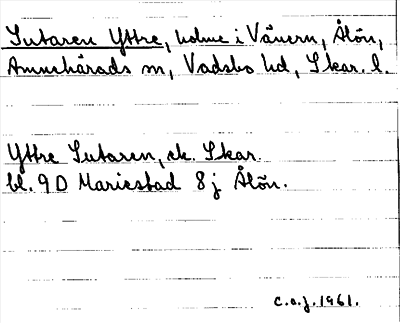 Sutaren Yttre, holme i Vänern, Ålön,
Amnehärads sn, Vadsbo hd, Skar. l.
Yttre Sutaren, ek. Skar.
bl. 9D Mariestad 8j Ålön.
c.a.j. 1961.